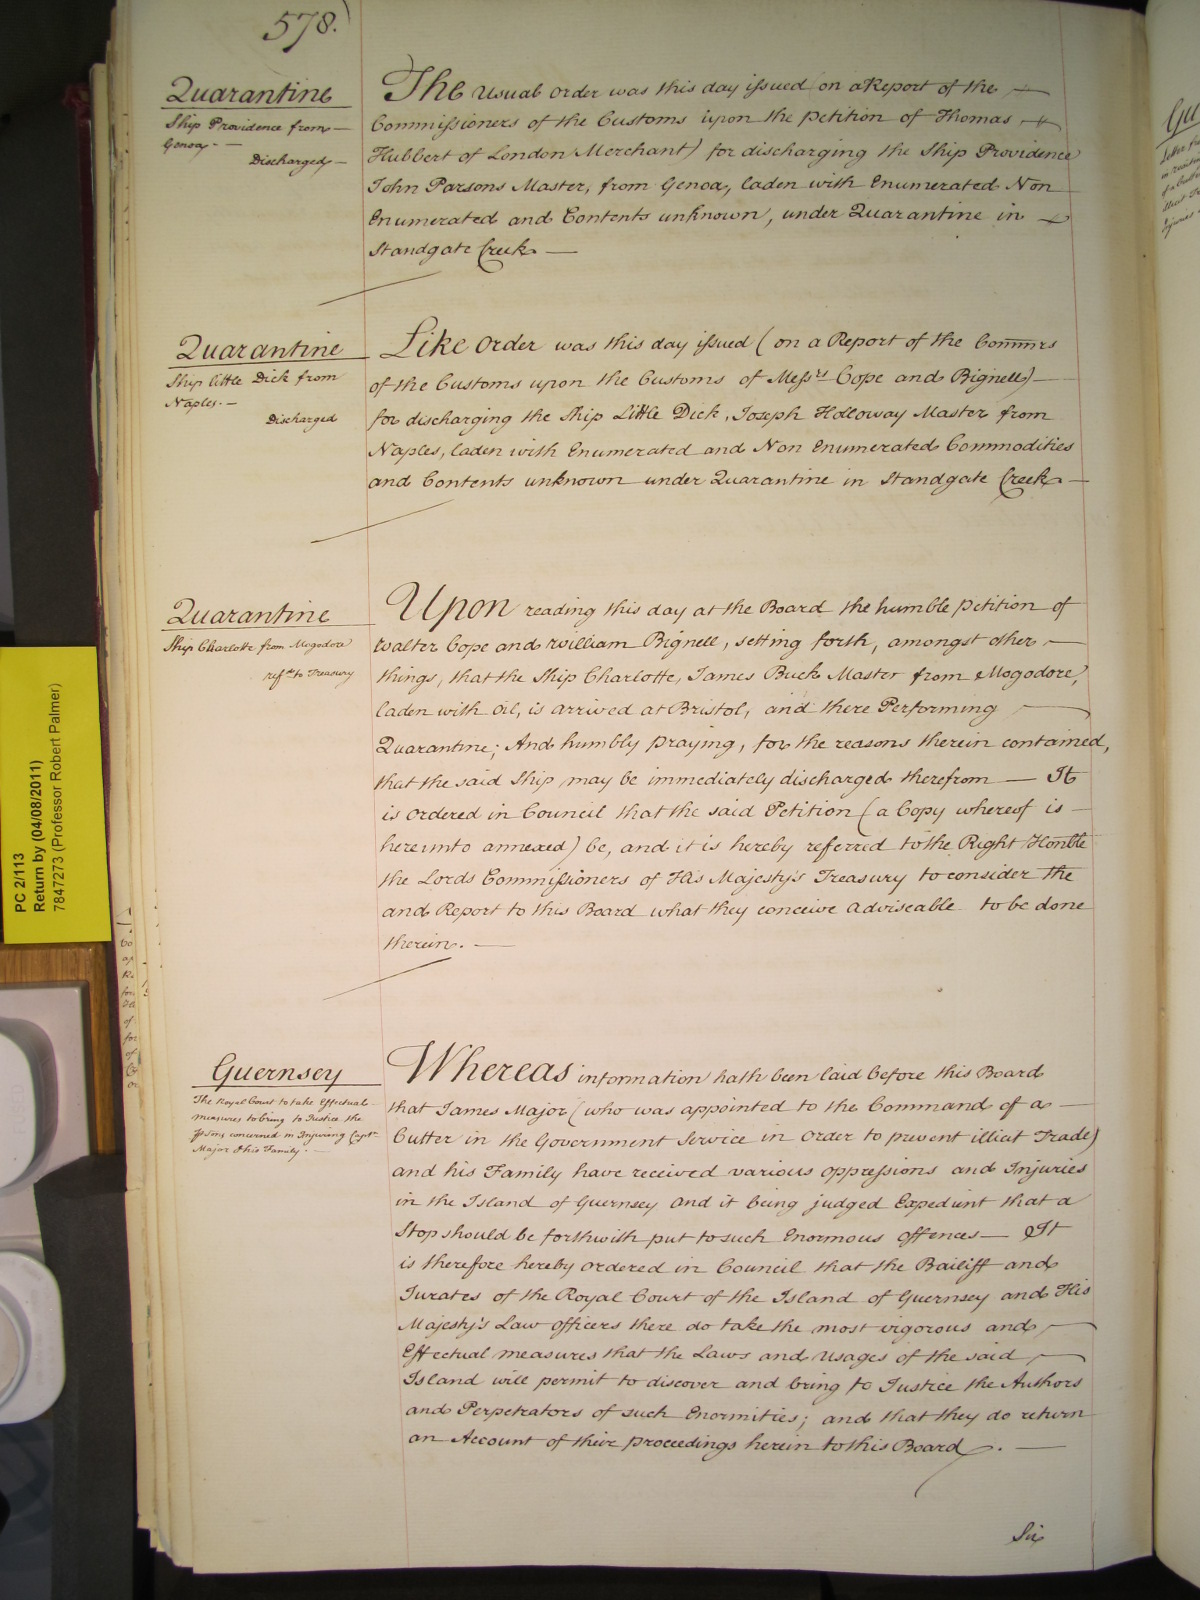 578.
Quarantine
Ship Providence from
Genoa
Discharged
The Usual Order was this day issued (on a Report of the
Commissioners of the Customs upon the Petition of Thomas
Hubbert of London Merchant) for discharging the Ship Providence
John Parsons Master, from Genoa, laden with Enumerated Non
Enumerated and Contents unknown, under Quarantine in
Standgate Creek.
Quarantine
Ship Little Dick from
Naples.
Discharged
Like Order was this day issued (on a Report of the Commrs
of the Customs upon the Customs of Messrs Cope and Bignell)
for discharging the Ship Little Dick, Joseph Holloway Master from
Naples, laden with Enumerated and Non Enumerated Commodities
and Contents unknown under Quarantine in Standgate Creek
Quarantine
Ship Charlotte from Mogodore
refd to Treasury
Upon reading this day at the Board the humble Petition of
Walter Cope and William Bignell, setting forth, amongst other
things, that the Ship Charlotte, James Buck Master from Mogodore,
laden with Oil, is arrived at Bristol, and there Performing
Quarantine; And humbly praying, for the reasons therein contained,
that the said Ship may be immediately discharged therefrom — It
is ordered in Council that the said Petition (a Copy whereof is
hereunto annexed) be, and it is hereby referred to the Right Honble
the Lords Commissioners of His Majesty's Treasury to consider the
and Report to this Board what they conceive adviseable to be done
therein.
Guernsey
The Royal Court to take Effectual
measures to bring to Justice the
Psons concerned in Injuring Captn
Major & his Family.
Whereas information hath been laid before this Board
that James Major (who was appointed to the Command of a
Cutter in the Government Service in order to prevent illicit Trade)
and his Family have received various oppressions and Injuries
in the Island of Guernsey and it being judged Expedient that a
Stop should be forthwith put to such Enormous offences — It
is therefore hereby ordered in Council that the Bailiff and
Jurates of the Royal Court of the Island of Guernsey and His
Majesty's Law officers there do take the most vigorous and
Effectual measures that the Laws and Usages of the said
Island will permit to discover and bring to Justice the Authors
and Perpetrators of such Enormities; and that they do return
an Account of their proceedings herein to this Board.
Six
PC 2/113
Return by (04/08/2011)
7847273 (Professor Robert Palmer)